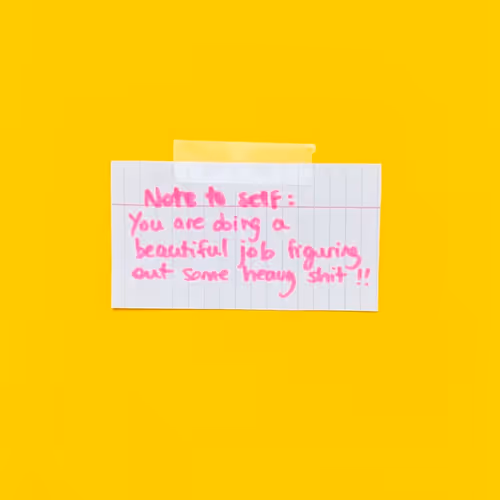 Note to self:
You are doing a
beautiful job figuring
out some heavy shit !!